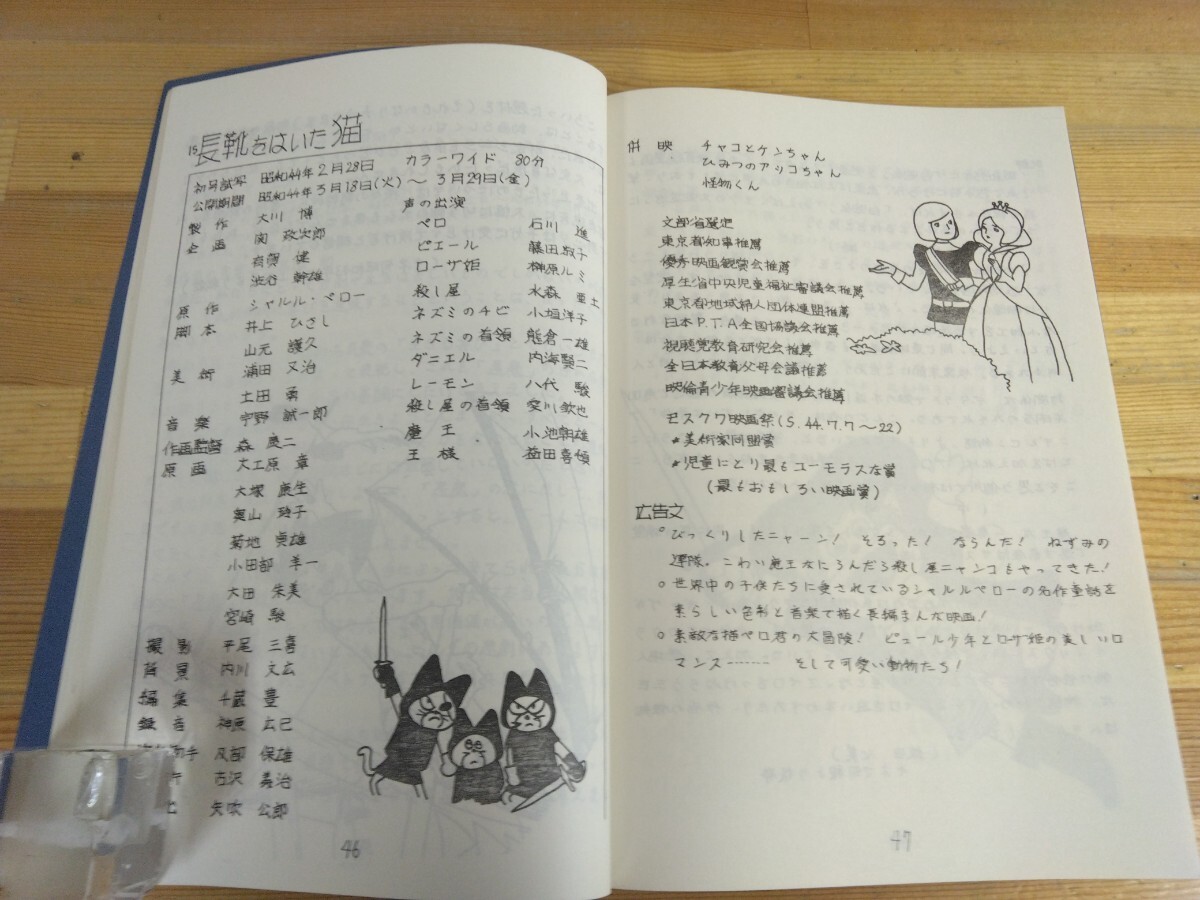 15 長靴をはいた猫
初号試写 昭和44年2月28日 カラーワイド 80分
公開期間 昭和44年3月18日(火)~3月29日(金)
製作 大川 博
企画 関 政次郎
有賀 健
渋谷 幹雄
原作 シャルル・ペロー
脚本 井上 ひさし
山元 護久
美術 浦田 又治
土田 勇
音楽 宇野 誠一郎
作画監督 森 康二
原画 大工原 章
大塚 康生
奥山 玲子
菊地 貞雄
小田部 羊一
大田 朱美
宮崎 駿
撮影 平尾 三喜
背景 内川 文広
編集 千蔵 豊
録音 神原 広巳
手 風部 保雄
古沢 英治
矢吹 公郎
声の出演
ペロ 石川 進
ピエール 藤田淑子
ローザ姫 榊原ルミ
殺し屋 水森 亜土
ネズミのチビ 小垣洋子
ネズミの首領 熊倉一雄
ダニエル 内海賢二
レーモン 八代 駿
殺し屋の首領 愛川欽也
魔王 小池朝雄
王様 益田喜頓
46
併映 チャコとケンちゃん
ひみつのアッコちゃん
怪物くん
文部省選定
東京都知事推薦
優秀映画観賞会推薦
厚生省中央児童福祉審議会推薦
東京都地域婦人団体連盟推薦
日本P.T.A全国協議会推薦
視聴覚教育研究会推薦
全日本教育父母会議推薦
映倫青少年映画審議会推薦
モスクワ映画祭(S.44.7.7~22)
★美術家同盟賞
★児童にとり最もユーモラスな賞
(最もおもしろい映画賞)
広告文
○びっくりしたニャーン! そろった! ならんだ! ねずみの
連隊。こわい魔王なにろんだろ殺し屋ニャンコもやってきた!
○世界中の子供たちに愛されているシャルルペローの名作童話を
素らしい色彩と音楽で描く長編まんが映画!
○素敵な猫ペロ君の大冒険! ピエール少年とロザ姫の美しいロ
マンス------- そして可愛い動物たち!
47